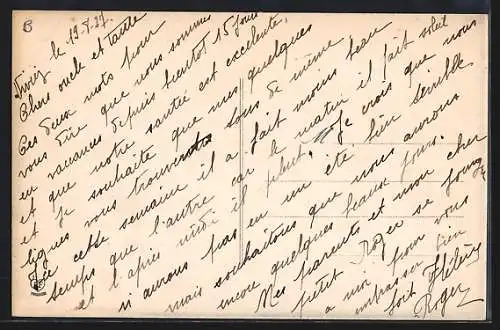 Viviez le 19-8-27.
Chers oncle et tante
Ces deux mots pour
vous dire que nous sommes
en vacances depuis bientôt 15 jours
et que notre santée est excellente,
et je souhaite que mes quelques
lignes vous trouvent tous de même
Ici cette semaine il a fait moins beau
temps que l'autre car le matin il fait soleil
et l'après midi il pleut. Je crois que nous
n'aurons pas eu un été bien terrible
mais souhaitons que nous aurons
encore quelques beaux jours.
Mes parents et mon cher
petit Roger se joignent
a moi pour vous
embrasser bien
fort
Roger